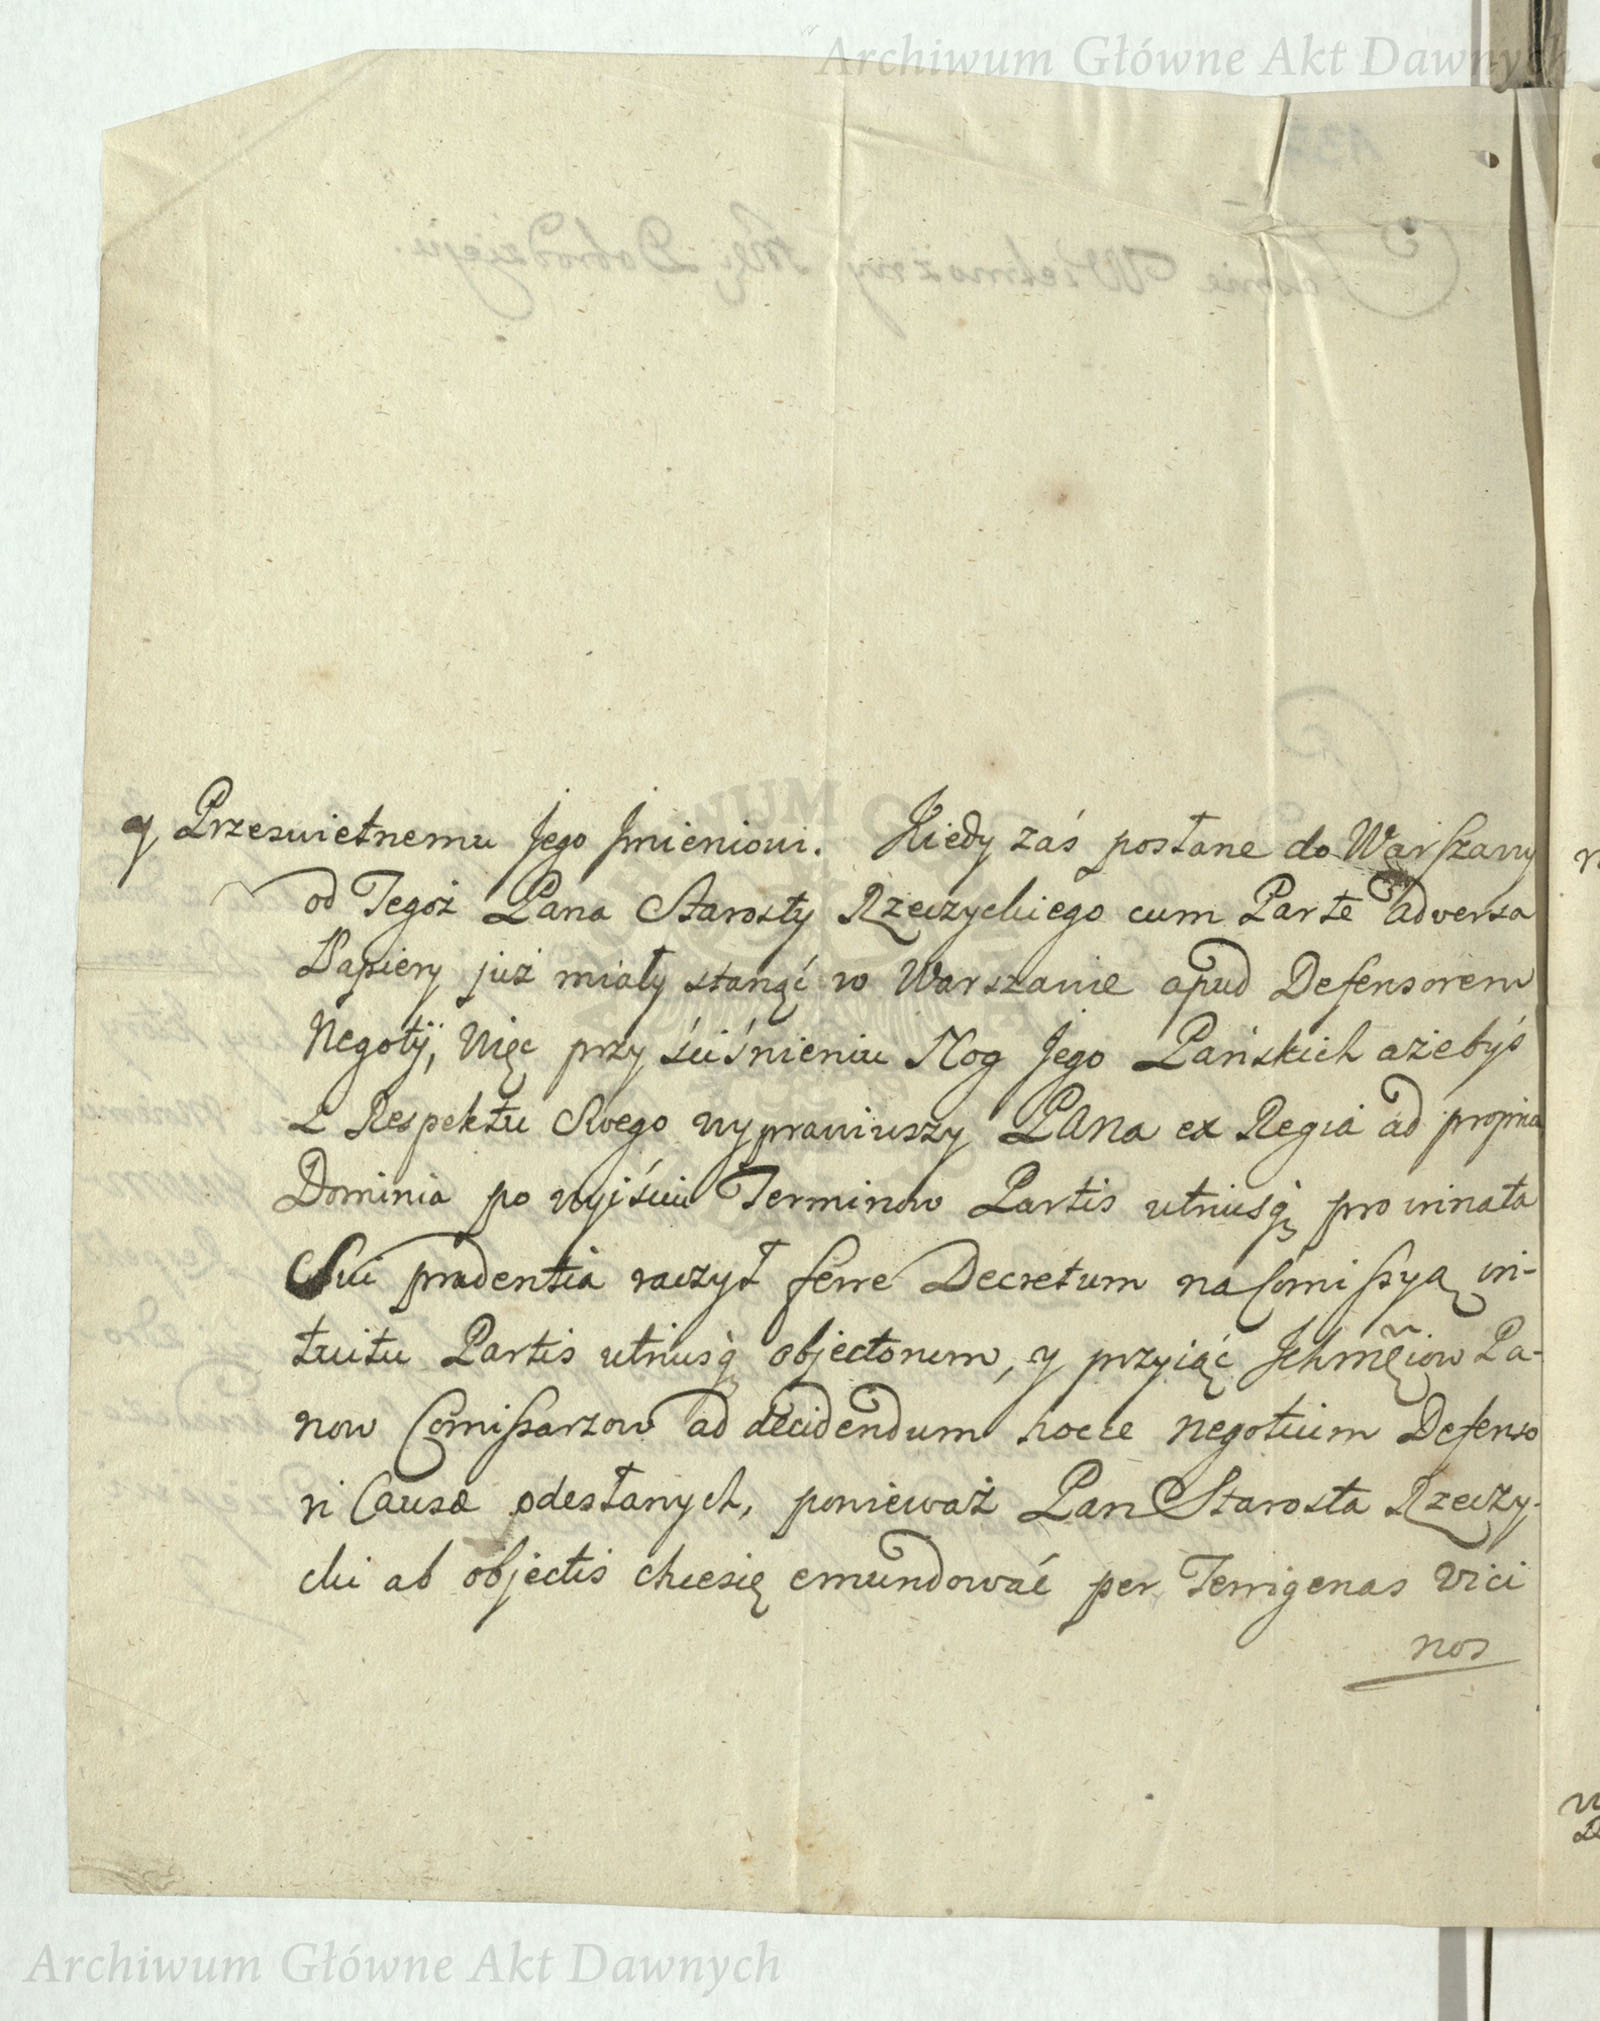 Archiwum Główne Akt Dawnych
y Przeswietnemu Jego Jmieniowi. Kiedy zaś posłane do Warszawy
od Tegoż Pana Starosty Rzeczyckiego cum Parte adversa
Papiery już miały stanąć w Warszawie apud Defensorem
Negotij, Więc przy ściśnieniu Nog Jego Pańskich ażebyś
z Respektu Swego wyprawiwszy PANa ex Regia ad propria
Dominia po wyiściu Terminow Partis utriusq pro innata
Sui prudentia raczył ferre Decretum na Comissyą in-
tuitu Partis utriusq objectorum, y przyiąć Jchmciow Pa-
now Comissarzow ad decidendum hocce negotium Defenso
ri Causæ odesłanych, ponieważ Pan Starosta Rzeczy-
cki ab objectis chcesię emundować per Terrigenas vici
nos
Archiwum Główne Akt Dawnych